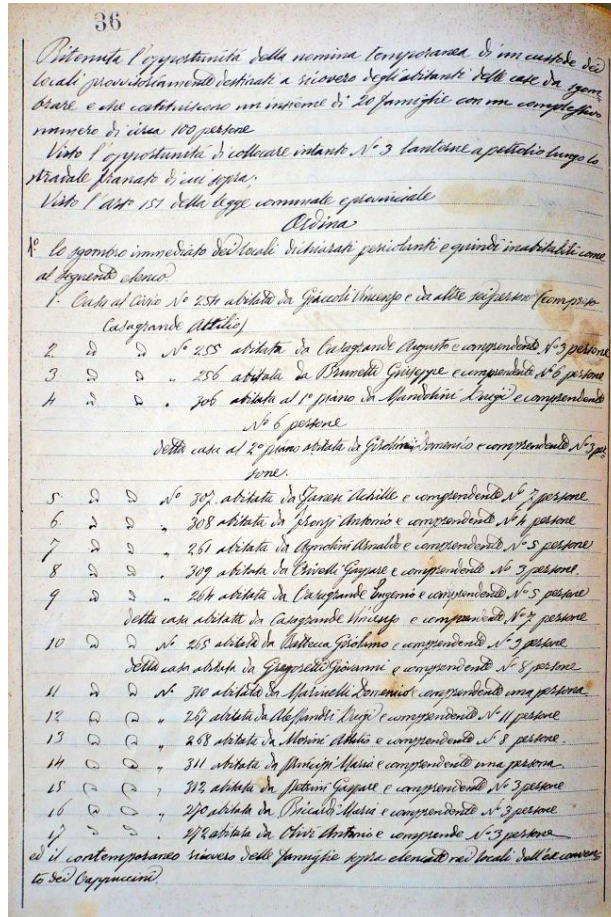 36
Ritenuta l'opportunità della nomina temporanea di un custode dei
locali provvisoriamente destinati a ricovero degli abitanti delle case da sgom-
brare e che costituiscono un insieme di 20 famiglie con un complessivo
numero di circa 100 persone
Visto l'opportunità di collocare intanto N° 3 lanterne a petrolio lungo lo
stradale franato di cui sopra;
Visto l'art° 151 della legge comunale e provinciale
Ordina
1° lo sgombro immediato dei locali dichiarati pericolanti e quindi inabitabili come
al seguente elenco
1. Casa al Civico N° 254 abitata da Giàccoli Vincenzo e da altre sei persone (compreso
Casagrande Attilio)
2 " " N° 255 abitata da Casagrande Augusto e comprendente N° 3 persone
3 " " " 256 abitata da Brunetti Giuseppe e comprendente N° 6 persone
4 " " " 306 abitata al 1° piano da Mandolini Luigi e comprendente
N° 6 persone
detta casa al 2° piano abitata da Domenico e comprendente N° 3 per-
sone.
5 " " N° 307 abitata da Achille e comprendente N° 7 persone
6. " " " 308 abitata da Antonio e comprendente N° 4 persone
7 " " " 261 abitata da Agnolini Arnaldo e comprendente N° 5 persone
8 " " " 309 abitata da Crivelli Gaspare e comprendente N° 3 persone.
9 " " " 264 abitata da Casagrande Eugenio e comprendente N° 5 persone
detta casa abitata da Casagrande Vincenzo e comprendente N° 7 persone
10 " " N° 265 abitata da Girolamo e comprendente N° 3 persone
detta casa abitata da Gregoretti Giovanni e comprendente N° 8 persone
11 " " N° 310 abitata da Marinelli Domenico e comprendente una persona
12 " " " 267 abitata da Alessandri Luigi e comprendente N° 11 persone
13 " " " 268 abitata da Morini Attilio e comprendente N° 8 persone.
14 " " " 311 abitata da Principi Maria e comprendente una persona.
15 " " " 312 abitata da Petrini Gaspare e comprendente N° 3 persone
16 " " " 270 abitata da Bricardi Maria e comprendente N° 3 persone
17 " " " 272 abitata da Olivi Antonio e comprende N° 3 persone
ed il contemporaneo ricovero delle famiglie sopra elencate nei locali dell'ex conven-
to dei Cappuccini.